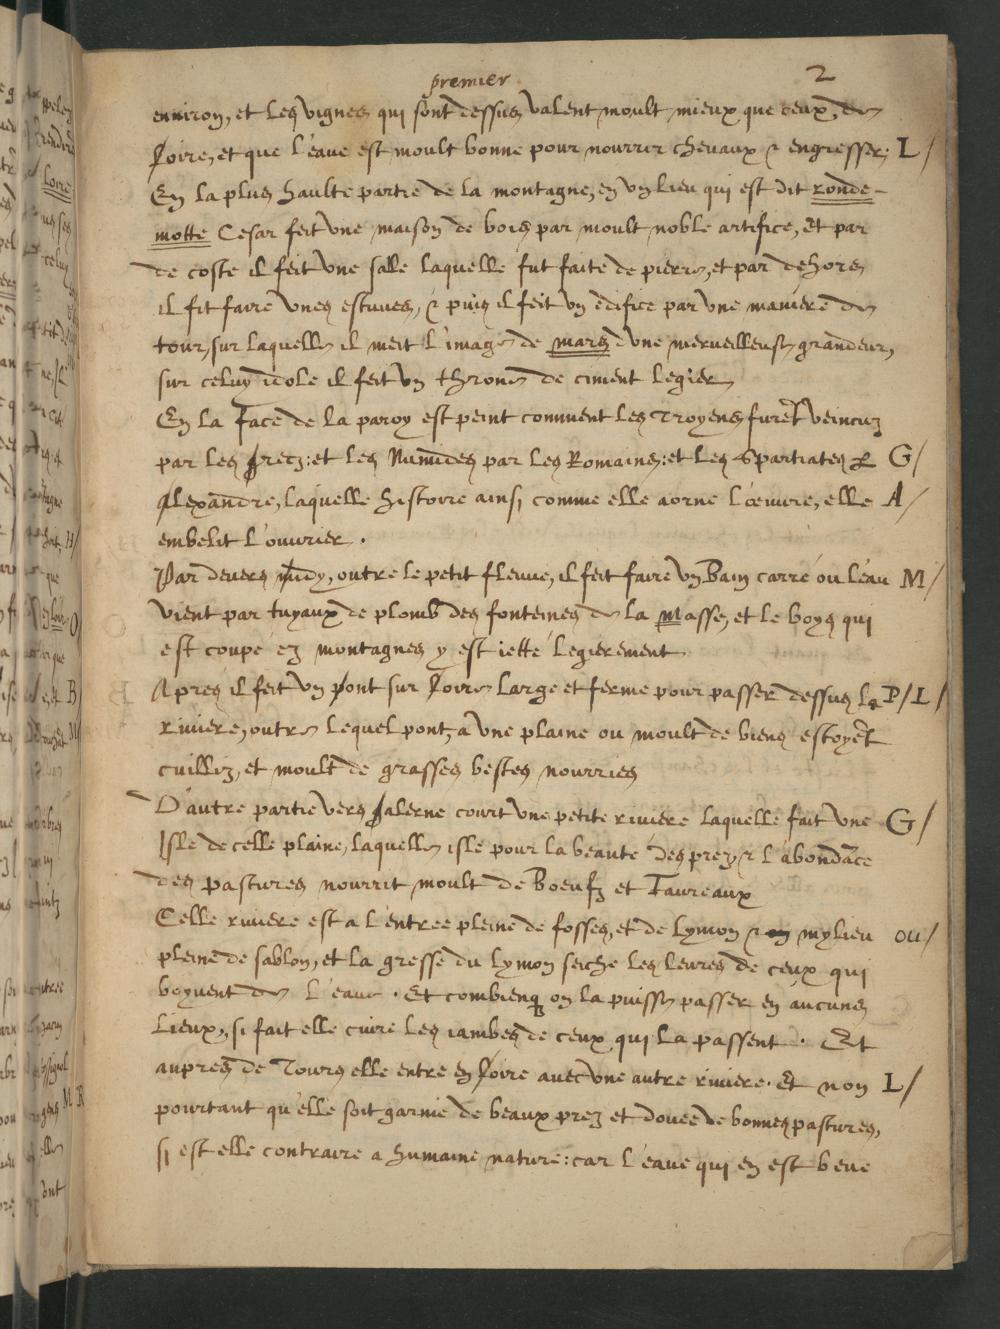 premier 2
enuiron, et les vignes qui sont dessus valent moult mieux que ceux de
Loire, et que l'eaue est moult bonne pour nourrir cheuaux & engresser. L/
En la plus haulte partie de la montagne, en vn lieu qui est dit ronde-
motte Cesar feit vne maison de bois par moult noble artifice, Et par
de coste il feit vne salle laquelle fut faite de pierre, et par dehors
il fit faire vnes estuues, & puis il feit vn edifice par vne maniere de
tour, sur laquelle il meit l'image de mars d'vne merueilleuse grandeur,
sur celuy idole il feit vn throne de ciment legier
En la face de la paroy est peint comment les Troyens furēt veincuz
par les Grecz: et les Numides par les Romains: et les Spartiates & G/
Alexandre, laquelle histoire ainsi comme elle aorne l'œuure, elle A/
embelit l'ouurier.
Par deuers Midy, outre le petit fleuue, il feit faire vn Bain carre ou l'eau M/
vient par tuyaux de plomb des fonteines de la Masse, et le boys qui
est coupé ez montagnes y est ietté legierement
Apres il feit vn Pont sur Loire large et ferme pour passer dessus la P/L/
riuiere, outre lequel pont, a vne plaine ou moult de biens estoyēt
cuilliz, et moult de grasses bestes nourries
D'autre partie vers Galerne court vne petite riuiere laquelle fait vne G/
Isle de celle plaine, laquelle isle pour la beauté des prez & l'abondāce
des pastures nourrit moult de Boeufz et Taureaux
Celle riuiere est a l'entree pleine de fosses, et de lymon & mylieu ou/
pleine de sablon, et la gresse du lymon seiche les leures de ceux qui
boyuent de l'eaue. Et combienq on la puisse passer en aucuns
lieux, si fait elle cuire les iambes de ceux qui la passent. Et
aupres de Tours elle entre en Loire auec vne autre riuiere. Et non L/
pourtant qu'elle soit garnie de beaux prez et douee de bonnes pastures,
si est elle contraire a humaine nature: car l'eaue qui en est beue